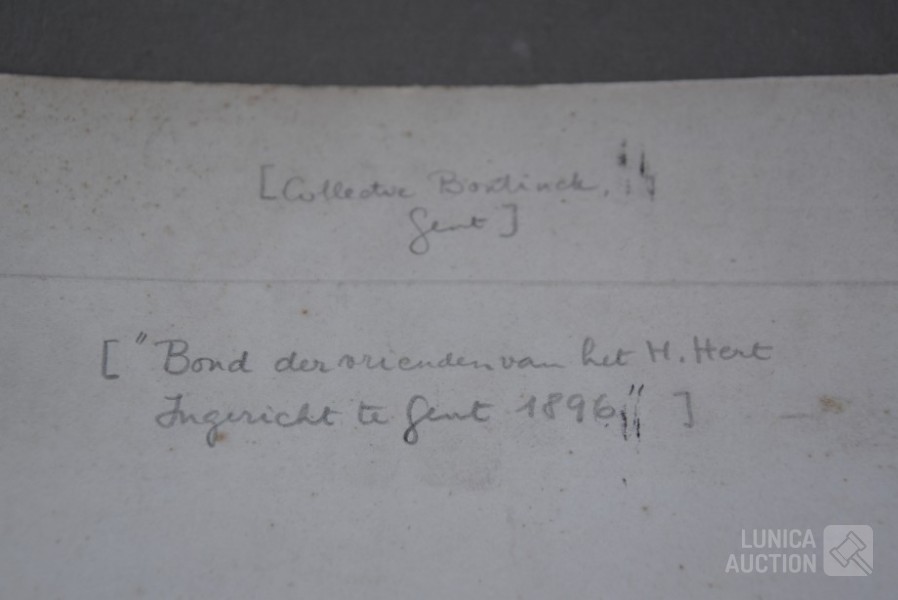 [Collectie Bontinck,
Gent]
["Bond der vrienden van het H. Hert
Ingericht te Gent 1896"]
LUNICA
AUCTION